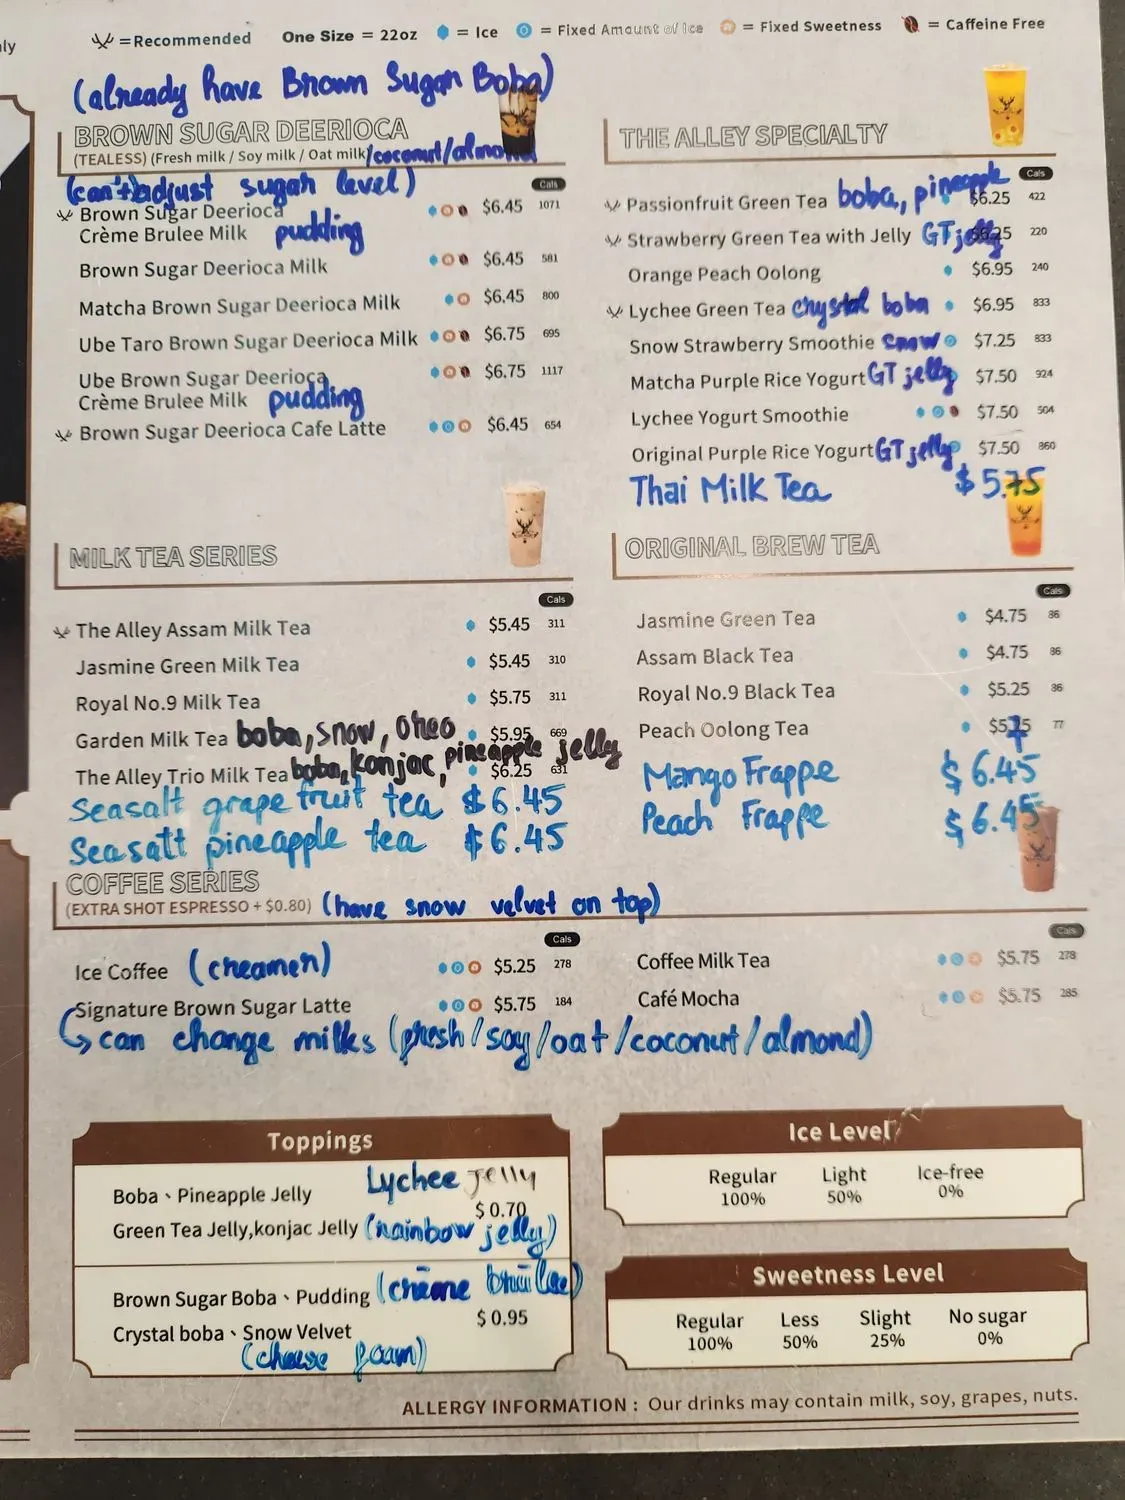 ly
=Recommended One Size = 22oz = Ice = Fixed Amount of Ice = Fixed Sweetness = Caffeine Free
(already have Brown Sugar Boba)
BROWN SUGAR DEERIOCA
(TEALESS) (Fresh milk / Soy milk / Oat milk) /coconut/almond
(can't adjust sugar level)
Cals
Brown Sugar Deerioca
Crème Brulee Milk pudding $6.45 1071
Brown Sugar Deerioca Milk $6.45 581
Matcha Brown Sugar Deerioca Milk $6.45 800
Ube Taro Brown Sugar Deerioca Milk $6.75 695
Ube Brown Sugar Deerioca
Crème Brulee Milk pudding $6.75 1117
Brown Sugar Deerioca Cafe Latte $6.45 654
THE ALLEY SPECIALTY
Cals
Passionfruit Green Tea boba, pineapple $6.25 422
Strawberry Green Tea with Jelly GT jelly $6.25 220
Orange Peach Oolong $6.95 240
Lychee Green Tea crystal boba $6.95 833
Snow Strawberry Smoothie snow $7.25 833
Matcha Purple Rice Yogurt GT jelly $7.50 924
Lychee Yogurt Smoothie $7.50 504
Original Purple Rice Yogurt GT jelly $7.50 860
Thai Milk Tea $5.75
MILK TEA SERIES
Cals
The Alley Assam Milk Tea $5.45 311
Jasmine Green Milk Tea $5.45 310
Royal No.9 Milk Tea $5.75 311
Garden Milk Tea boba, snow, oreo $5.95 669
The Alley Trio Milk Tea boba, konjac, pineapple jelly $6.25 631
Seasalt grapefruit tea $6.45
Seasalt pineapple tea $6.45
ORIGINAL BREW TEA
Cals
Jasmine Green Tea $4.75 86
Assam Black Tea $4.75 36
Royal No.9 Black Tea $5.25 36
Peach Oolong Tea 77
Mango Frappe $6.45
Peach Frappe $6.45
COFFEE SERIES
(EXTRA SHOT ESPRESSO + $0.80) (have snow velvet on top)
Cals
Ice Coffee (creamer) $5.25 278
Signature Brown Sugar Latte $5.75 184
Cals
Coffee Milk Tea $5.75 278
Café Mocha $5.75 285
can change milks (fresh/soy/oat/coconut/almond)
Toppings
Boba、Pineapple Jelly Lychee jelly
$0.70
Green Tea Jelly,konjac Jelly (rainbow jelly)
Brown Sugar Boba、Pudding (crème brulee)
$0.95
Crystal boba、Snow Velvet
(cheese foam)
Ice Level
Regular Light Ice-free
100% 50% 0%
Sweetness Level
Regular Less Slight No sugar
100% 50% 25% 0%
ALLERGY INFORMATION : Our drinks may contain milk, soy, grapes, nuts.